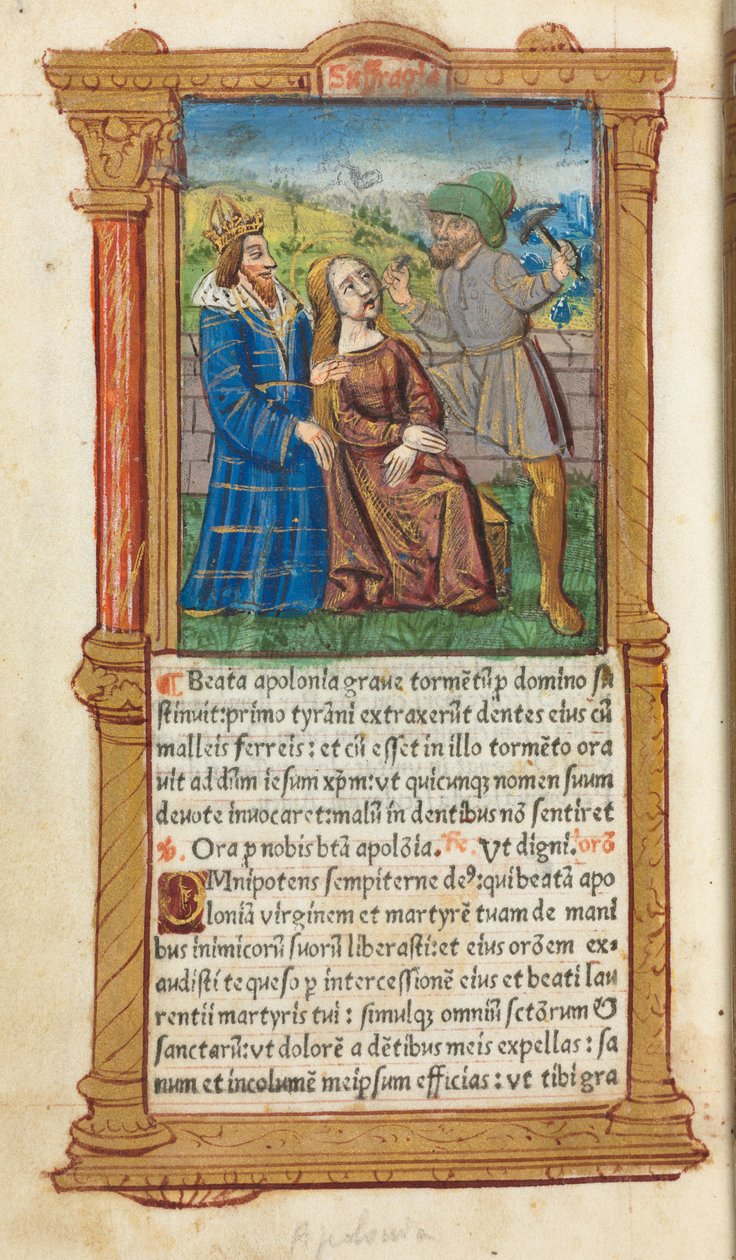 Suffragia
¶ Beata apolonia graue tormētū ꝑ domino su
stinuit: primo tyrāni extraxerūt dentes eius cū
malleis ferreis: et cū esset in illo tormēto ora
uit ad dūm iesum xp̄m: vt quicunqꝫ nomen suum
deuote inuocaret: malū in dentibus nō sentiret
℣. Ora ꝓ nobis btā apolōia. ℟. Vt digni. orō
OMnipotens sempiterne deꝰ: qui beatā apo
loniā virginem et martyrē tuam de mani
bus inimicorū suorū liberasti: et eius orōem ex-
audisti te queso ꝑ intercessionē eius et beati lau
rentii martyris tui: simulqꝫ omniū sctōrum &
sanctarū: vt dolorē a dētibus meis expellas: sa
num et incolumē meipsum efficias: vt tibi gra
Apolonia